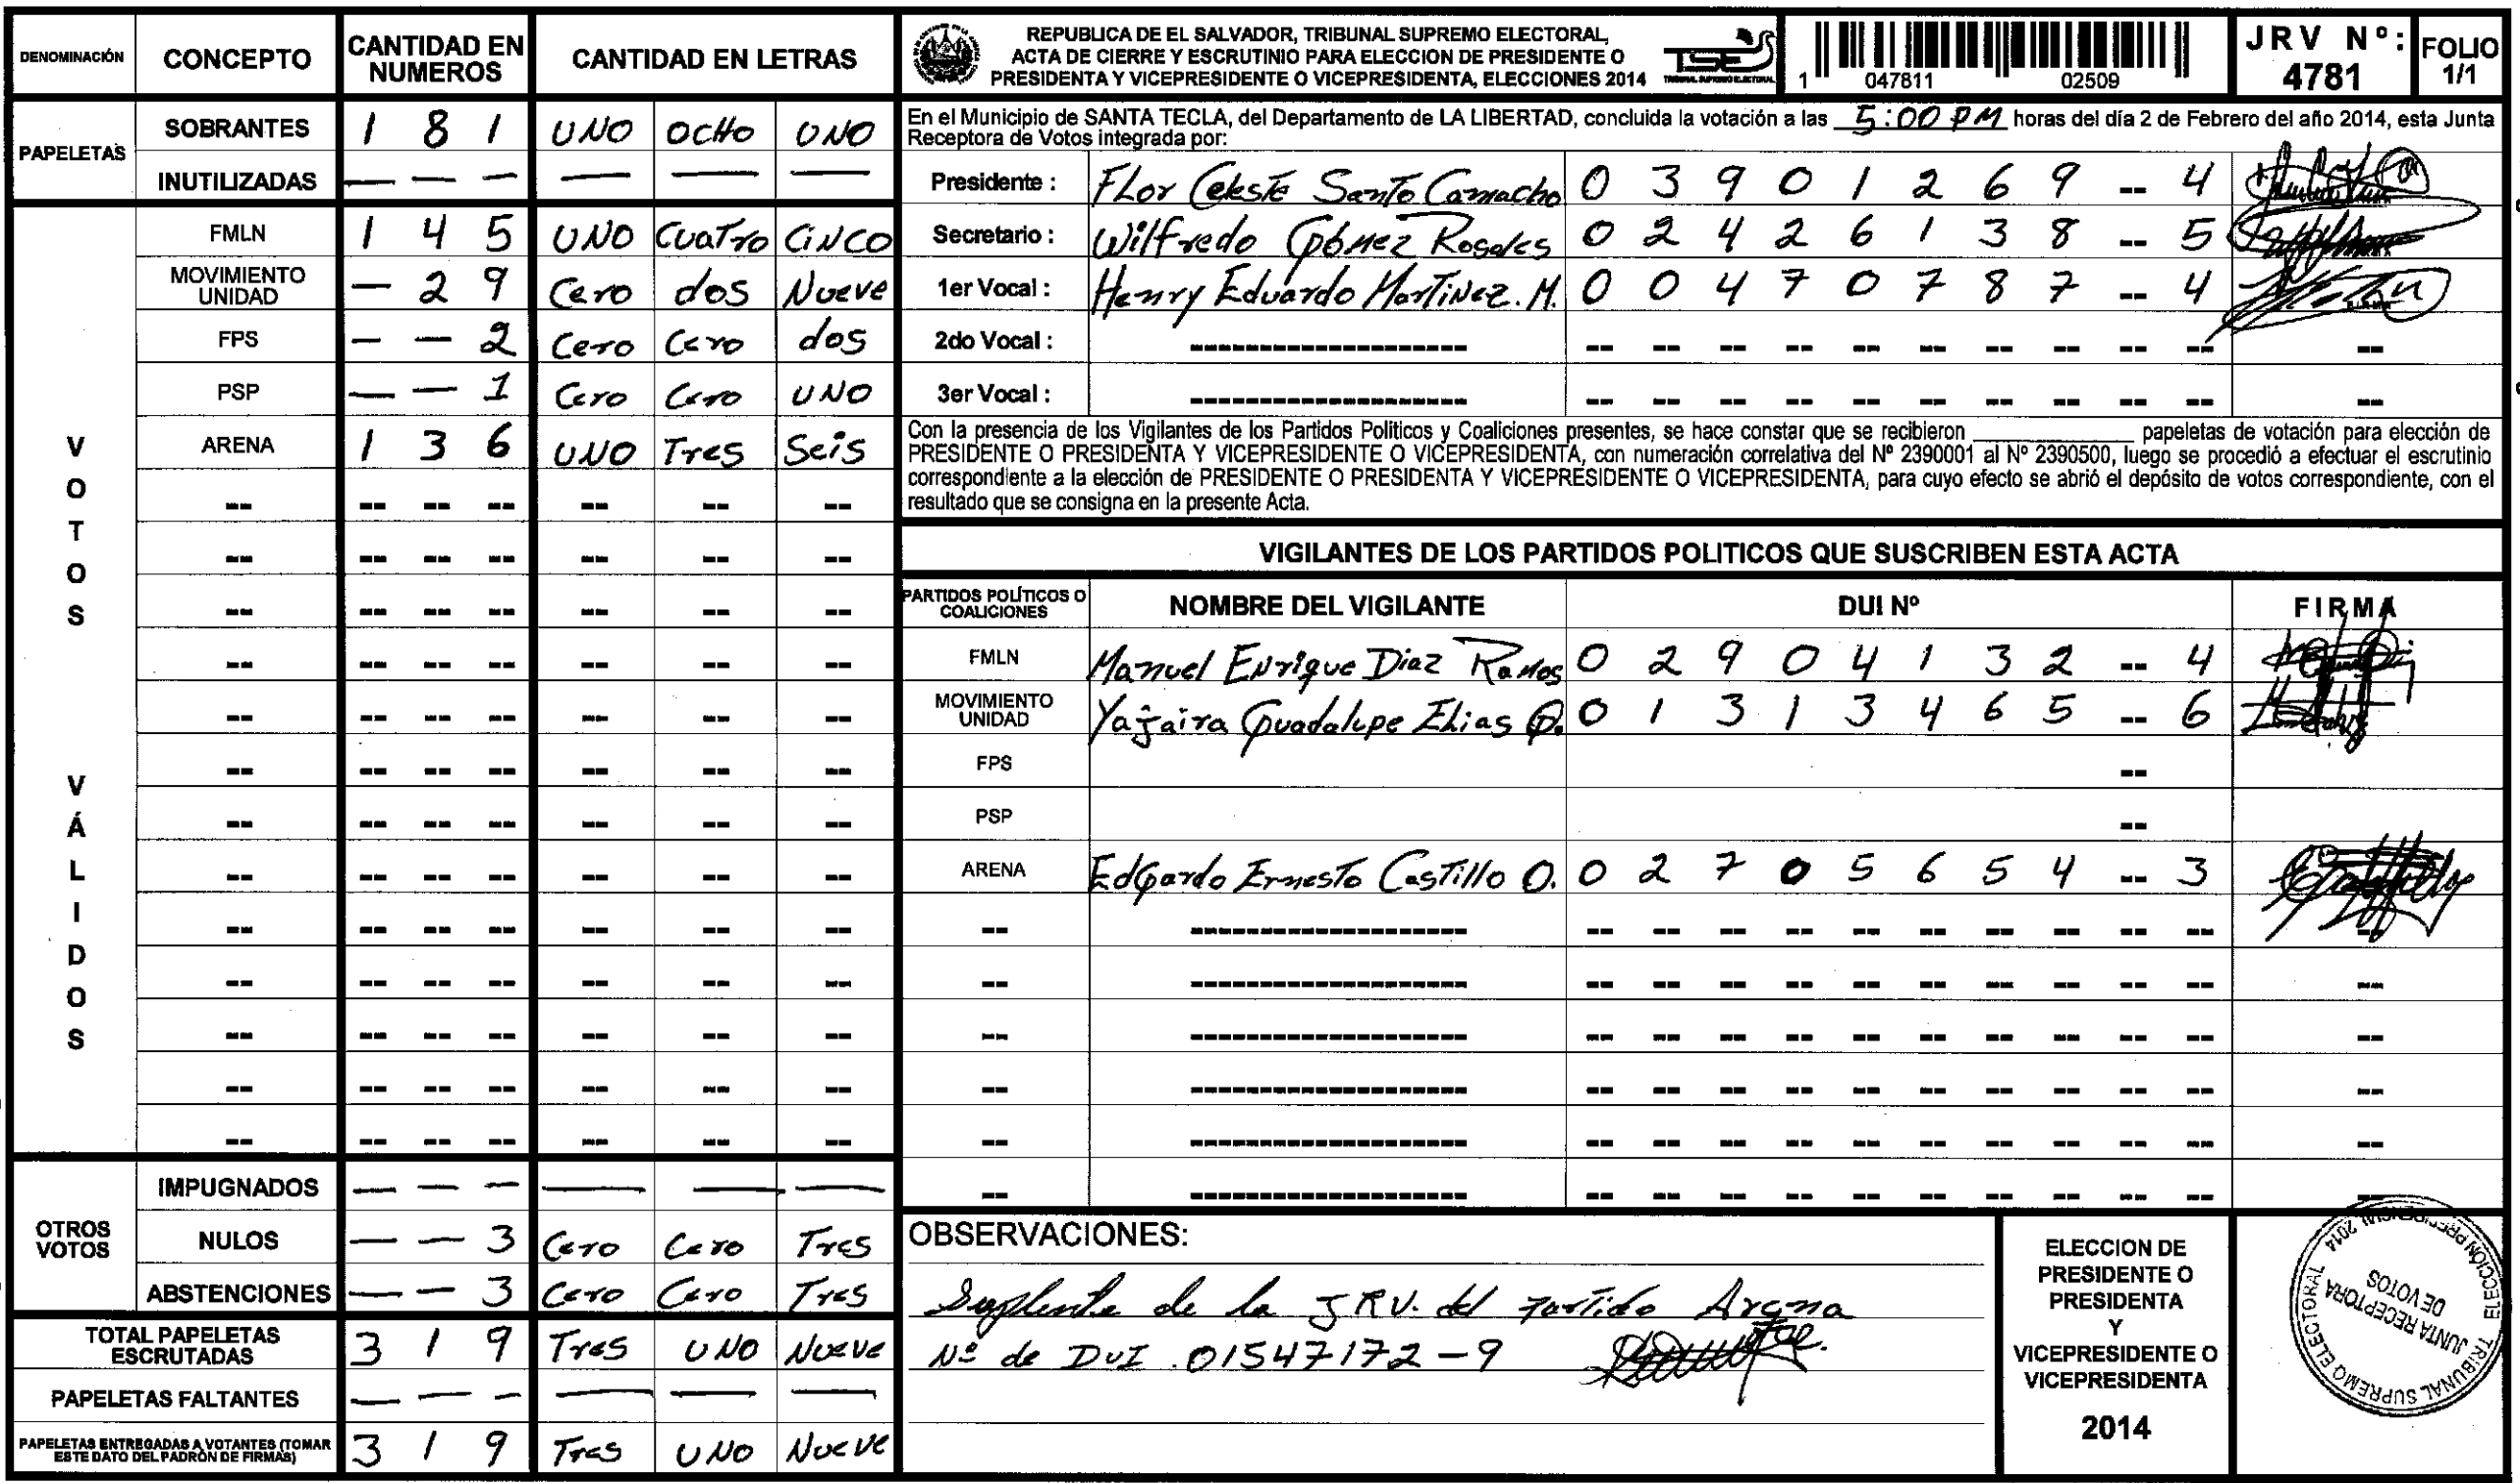 DENOMINACIÓN CONCEPTO CANTIDAD EN NUMEROS CANTIDAD EN LETRAS
PAPELETAS
SOBRANTES 1 8 1 UNO OCHO UNO
INUTILIZADAS — — — — — —
VOTOS VÁLIDOS
FMLN 1 4 5 UNO CUATRO CINCO
MOVIMIENTO UNIDAD — 2 9 Cero dos Nueve
FPS — — 2 Cero Cero dos
PSP — — 1 Cero Cero UNO
ARENA 1 3 6 UNO Tres Seis
OTROS VOTOS
IMPUGNADOS — — — — — —
NULOS — — 3 Cero Cero Tres
ABSTENCIONES — — 3 Cero Cero Tres
TOTAL PAPELETAS ESCRUTADAS 3 1 9 Tres UNO Nueve
PAPELETAS FALTANTES — — — — — —
PAPELETAS ENTREGADAS A VOTANTES (TOMAR ESTE DATO DEL PADRÓN DE FIRMAS) 3 1 9 Tres UNO Nueve
REPUBLICA DE EL SALVADOR, TRIBUNAL SUPREMO ELECTORAL,
ACTA DE CIERRE Y ESCRUTINIO PARA ELECCION DE PRESIDENTE O
PRESIDENTA Y VICEPRESIDENTE O VICEPRESIDENTA, ELECCIONES 2014
TSE
TRIBUNAL SUPREMO ELECTORAL
1 047811 02509
JRV Nº: 4781
FOLIO 1/1
En el Municipio de SANTA TECLA, del Departamento de LA LIBERTAD, concluida la votación a las 5:00 PM horas del día 2 de Febrero del año 2014, esta Junta
Receptora de Votos integrada por:
Presidente : Flor Celeste Santo Camacho 0 3 9 0 1 2 6 9 -- 4
Secretario : Wilfredo Gómez Rosales 0 2 4 2 6 1 3 8 -- 5
1er Vocal : Henry Eduardo Martinez. M. 0 0 4 7 0 7 8 7 -- 4
2do Vocal :
3er Vocal :
Con la presencia de los Vigilantes de los Partidos Politicos y Coaliciones presentes, se hace constar que se recibieron ____ papeletas de votación para elección de
PRESIDENTE O PRESIDENTA Y VICEPRESIDENTE O VICEPRESIDENTA, con numeración correlativa del Nº 2390001 al Nº 2390500, luego se procedió a efectuar el escrutinio
correspondiente a la elección de PRESIDENTE O PRESIDENTA Y VICEPRESIDENTE O VICEPRESIDENTA, para cuyo efecto se abrió el depósito de votos correspondiente, con el
resultado que se consigna en la presente Acta.
VIGILANTES DE LOS PARTIDOS POLITICOS QUE SUSCRIBEN ESTA ACTA
PARTIDOS POLÍTICOS O COALICIONES NOMBRE DEL VIGILANTE DUI Nº FIRMA
FMLN Manuel Enrique Diaz Ramos 0 2 9 0 4 1 3 2 -- 4
MOVIMIENTO UNIDAD Yajaira Guadalupe Elias G. 0 1 3 1 3 4 6 5 -- 6
FPS --
PSP --
ARENA Edgardo Ernesto Castillo O. 0 2 7 0 5 6 5 4 -- 3
OBSERVACIONES:
Suplente de la J RV. del partido Arena
Nº de DUI .01547172-9
ELECCION DE
PRESIDENTE O
PRESIDENTA
Y
VICEPRESIDENTE O
VICEPRESIDENTA
2014
TRIBUNAL SUPREMO ELECTORAL
ELECCIÓN PRESIDENCIAL 2014
JUNTA RECEPTORA
DE VOTOS